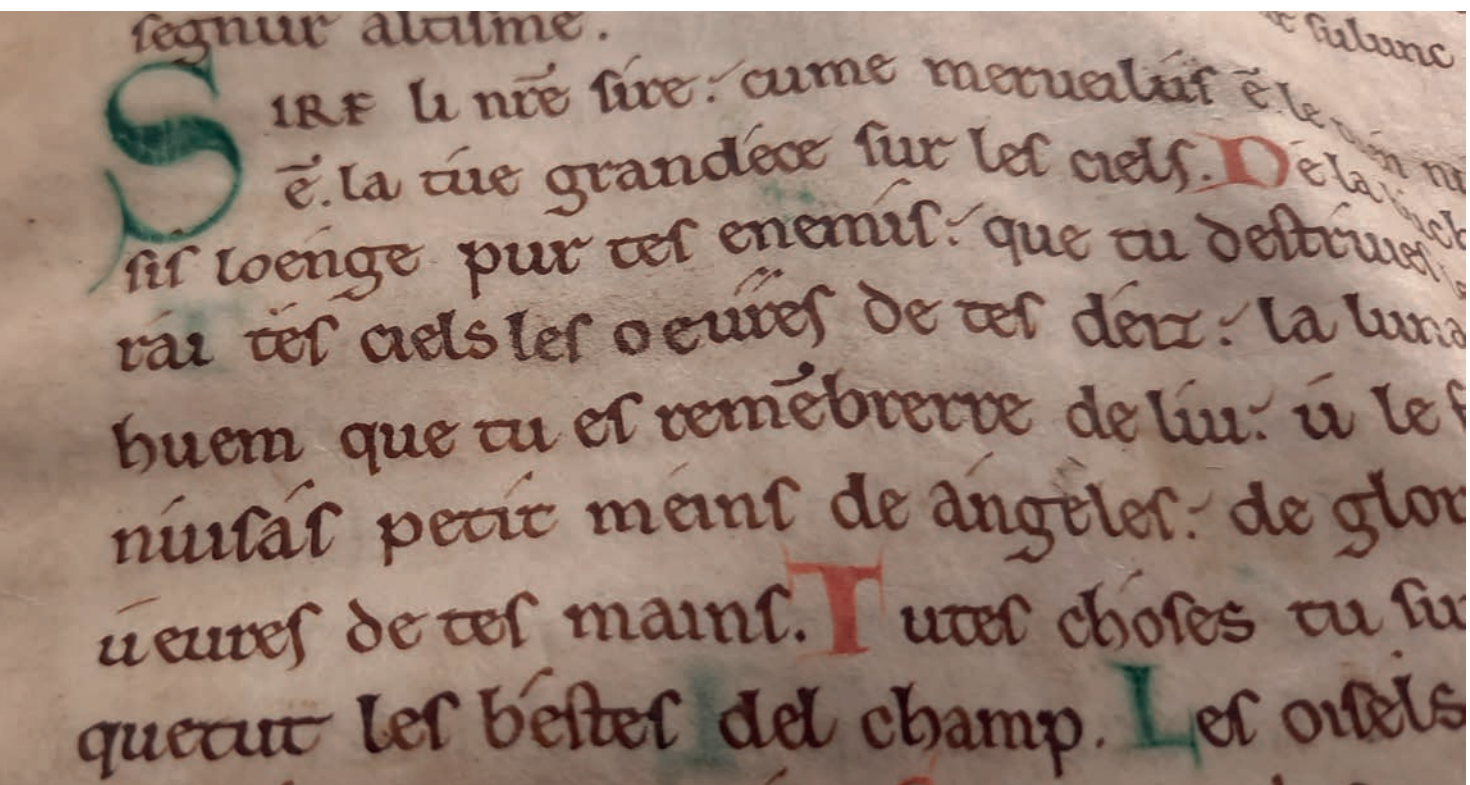 segnur altisme.
SIRE li nr̄e sire: cume merueálus ē le
ē. la túe grandéce sur les ciels. De la
sis loénge pur tes enemis: que tu destrúies
rái tés ciels les oeuŕes de tes deiz: la luna
huem que tu es remēbrerre de lúi: ú le
núisás petit meins de ángeles: de glor
úeures de tes mains. Tutes choses tu su
quetut les béstes del champ. Les oisels